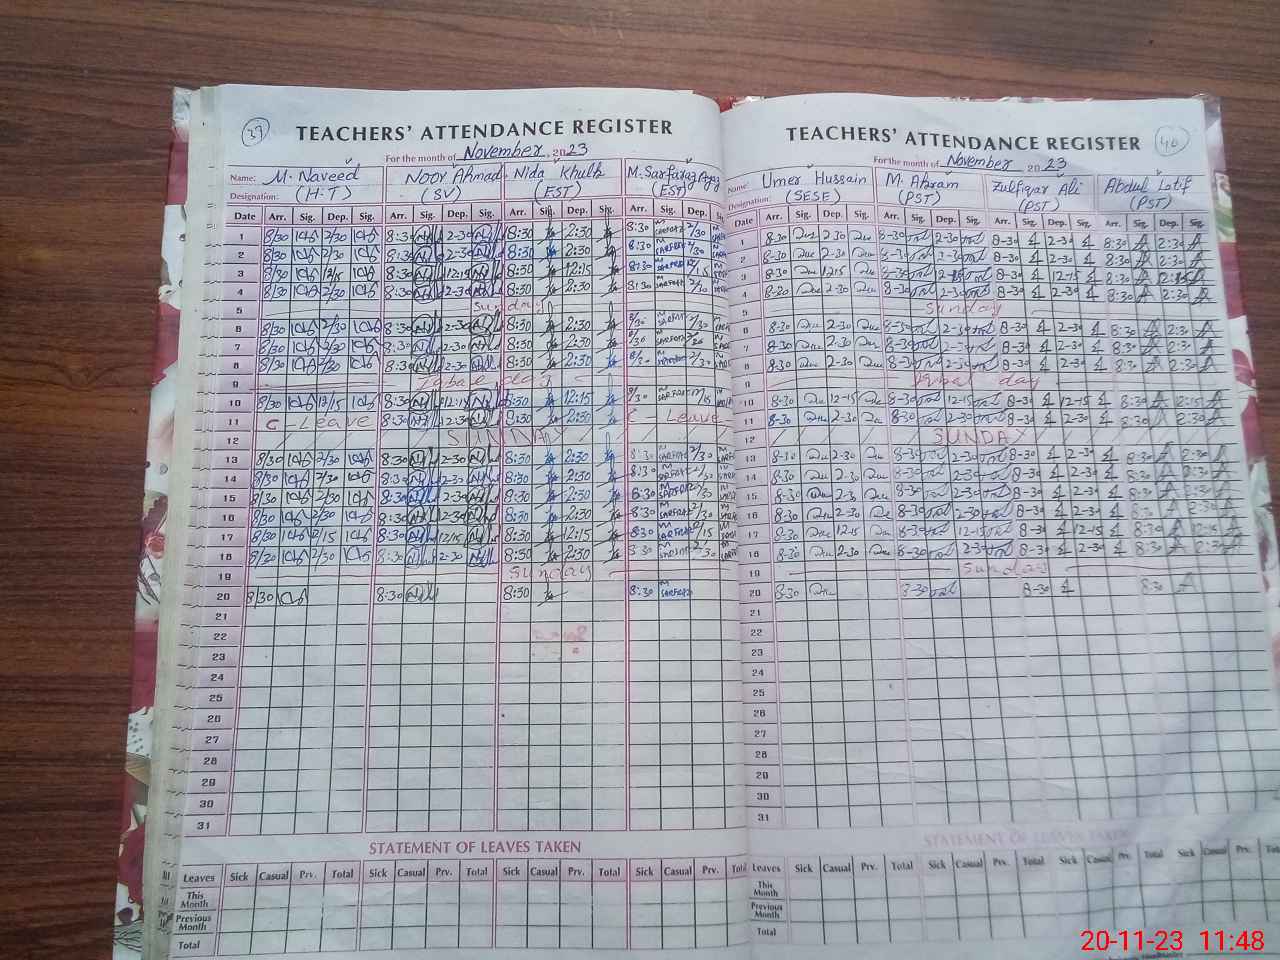 37 TEACHERS' ATTENDANCE REGISTER
For the month of November, 2023
Name: M. Naveed Noor Ahmad Nida Khulb M. Sarfaraz Ayaz
Designation: (H.T) (SV) (EST) (EST)
Date Arr. Sig. Dep. Sig. Arr. Sig. Dep. Sig. Arr. Sig. Dep. Sig. Arr. Sig. Dep.
1 8/30 2/30 8:30 2-30 8:30 2:30 8:30 2/30
2 8/30 2/30 8:30 2-30 8:30 2:30 8:30 2/30
3 8/30 12/15 8:30 12:15 8:30 12:15 8:30 12/15
4 8/30 2/30 8:30 2-30 8:30 2:30 8:30 2/30
5 Sunday
6 8/30 2/30 8:30 2-30 8:30 2:30 8/30 2/30
7 8/30 2/30 8:30 2-30 8:30 2:30 8/30 2/30
8 8/30 2/30 8:30 2-30 8:30 2:30 8/30 2/30
9 Iqbal day
10 8/30 12/15 8:30 12:15 8:30 12:15 8/30 12/15
11 C-Leave 8:30 2-30 8:30 2:30 C Leave
12 SUNDAY
13 8/30 2/30 8:30 2-30 8:30 2:30 8:30 2/30
14 8/30 2/30 8:30 2-30 8:30 2:30 8:30 2/30
15 8/30 2/30 8:30 2-30 8:30 2:30 8:30 2/30
16 8/30 2/30 8:30 2-30 8:30 2:30 8:30 2/30
17 8/30 12/15 8:30 12/15 8:30 12:15 8:30 12/15
18 8/30 2/30 8:30 2-30 8:30 2:30 8:30 2/30
19 Sunday
20 8/30 8:30 8:30 8:30
21
22
23
24
25
26
27
28
29
30
31
STATEMENT OF LEAVES TAKEN
Leaves Sick Casual Prv. Total Sick Casual Prv. Total Sick Casual Prv. Total Sick Casual Prv. Total
This Month
Previous Month
Total
TEACHERS' ATTENDANCE REGISTER 40
For the month of November 2023
Name: Umer Hussain M. Akram Zulfiqar Ali Abdul Latif
Designation: (SESE) (PST) (PST) (PST)
Date Arr. Sig. Dep. Sig. Arr. Sig. Dep. Sig. Arr. Sig. Dep. Sig. Arr. Sig. Dep. Sig.
1 8-30 2-30 8-30 2-30 8-30 2-30 8:30 2:30
2 8-30 2-30 8-30 2-30 8-30 2-30 8:30 2:30
3 8-30 12-15 8-30 12-15 8-30 12-15 8:30 12:15
4 8-30 2-30 8-30 2-30 8-30 2-30 8:30 2:30
5 Sunday
6 8-30 2-30 8-30 2-30 8-30 2-30 8:30 2:30
7 8-30 2-30 8-30 2-30 8-30 2-30 8:30 2:30
8 8-30 2-30 8-30 2-30 8-30 2-30 8:30 2:30
9 Iqbal day
10 8-30 12-15 8-30 12-15 8-30 12-15 8:30 12:15
11 8-30 2-30 8-30 2-30 8-30 2-30 8:30 2:30
12 SUNDAY
13 8-30 2-30 8-30 2-30 8-30 2-30 8:30 2:30
14 8-30 2-30 8-30 2-30 8-30 2-30 8:30 2:30
15 8-30 2-30 8-30 2-30 8-30 2-30 8:30 2:30
16 8-30 2-30 8-30 2-30 8-30 2-30 8:30 2:30
17 8-30 12-15 8-30 12-15 8-30 12-15 8:30 12:30
18 8-30 2-30 8-30 2-30 8-30 2-30 8:30 2:30
19 Sunday
20 8-30 8-30 8-30 8:30
21
22
23
24
25
26
27
28
29
30
31
STATEMENT OF LEAVES TAKEN
Leaves Sick Casual Prv. Total Sick Casual Prv. Total Sick Casual Prv. Total Sick Casual Prv.
This Month
Previous Month
Total
20-11-23 11:48